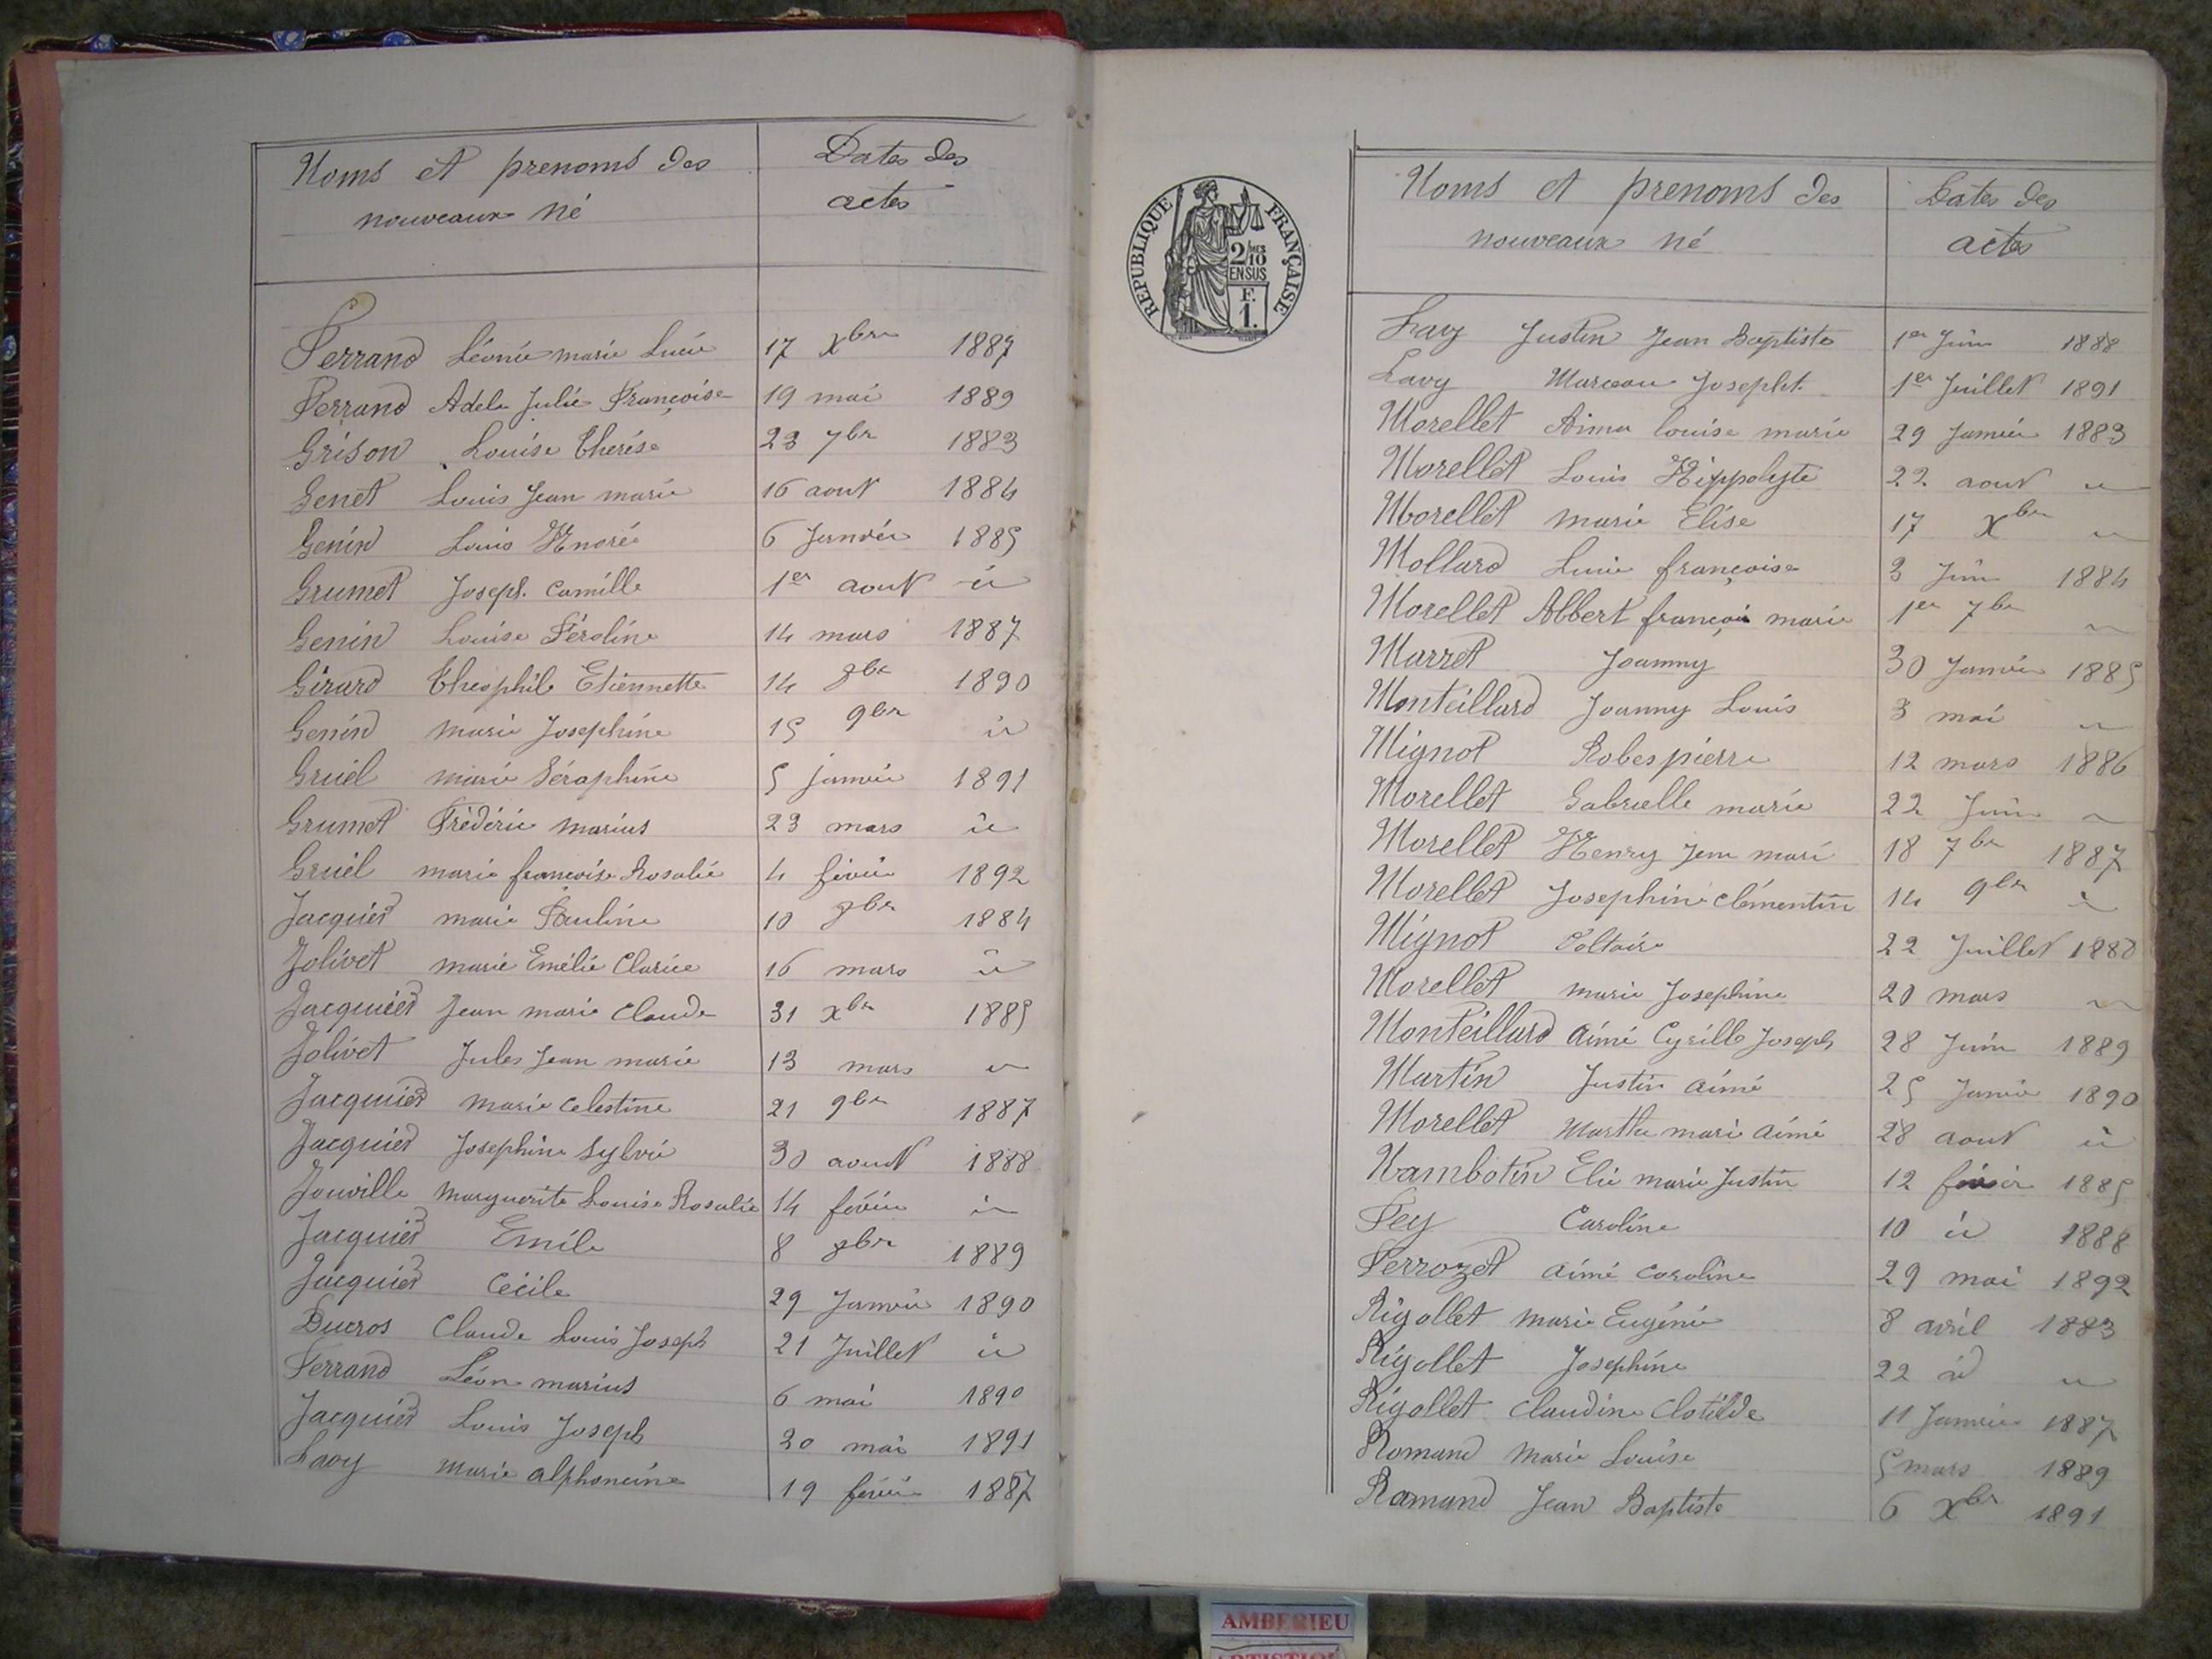 Noms et prenoms des
nouveaux né
Dates des
actes
Ferrand Léonie marie Lucie 17 Xbre 1887
Ferrand Adele Julie Françoise 19 mai 1889
Grison Louise Therése 23 7bre 1883
Genet Louis Jean marie 16 aout 1884
Genin Louis Honoré 6 Janvier 1885
Grumet Joseph Camille 1er aout id
Genin Louise Féroline 14 mars 1887
Girard Theophile Etiennette 14 8bre 1890
Genin marie Josephine 15 9bre id
Gruel marie Séraphine 5 janvier 1891
Grumet Frédéric marius 23 mars id
Gruel marie françoise Rosalie 4 février 1892
Jacquier marie Pauline 10 8bre 1884
Jolivet marie Emélie Clarice 16 mars id
Jacquier Jean marie Claude 31 Xbre 1885
Jolivet Jules Jean marie 13 mars id
Jacquier marie Celestine 21 9bre 1887
Jacquier Josephine Sylvie 30 aout 1888
Jouville marguerite Louise Rosalie 14 février id
Jacquier Emile 8 8bre 1889
Jacquier Cécile 29 Janvier 1890
Ducros Claude Louis Joseph 21 Juillet id
Ferrand Léon marius 6 mai 1890
Jacquier Louis Joseph 20 mai 1891
Lavy marie alphoncine 19 février 1887
REPUBLIQUE FRANÇAISE
2/10 MES
EN SUS
F.
1.
Noms et prenoms des
nouveaux né
Dates des
actes
Lavy Justin Jean Baptiste 1er Juin 1888
Lavy Marceau Josepht 1er Juillet 1891
Morellet Aima louise marie 29 Janvier 1883
Morellet Louis Hippolyte 22 aout id
Morellet marie Elise 17 Xbre id
Mollard Lucie françoise 3 Juin 1884
Morellet Albert françois marie 1er 7bre id
Marret Joanny 30 Janvier 1885
Monteillard Joanny Louis 3 mai id
Mignot Robespierre 12 mars 1886
Morellet Gabrielle marie 22 Juin id
Morellet Henry Jean marie 18 7bre 1887
Morellet Josephine Clémentine 14 9bre id
Mignot Voltaire 22 Juillet 1888
Morellet marie Josephine 20 mars id
Monteillard aimé Cyrille Joseph 28 Juin 1889
Martin Justin aimé 25 Janvier 1890
Morellet Marthe marie aimé 28 aout id
Nambotin Elie marie Justin 12 février 1885
Pey Caroline 10 id 1888
Perrozet aimé Caroline 29 mai 1892
Rigollet marie Eugénie 8 avril 1883
Rigollet Josephine 22 id id
Rigollet Claudine Clotilde 11 Janvier 1887
Romand Marie Louise 5 mars 1889
Ramand Jean Baptiste 6 Xbre 1891
AMBERIEU